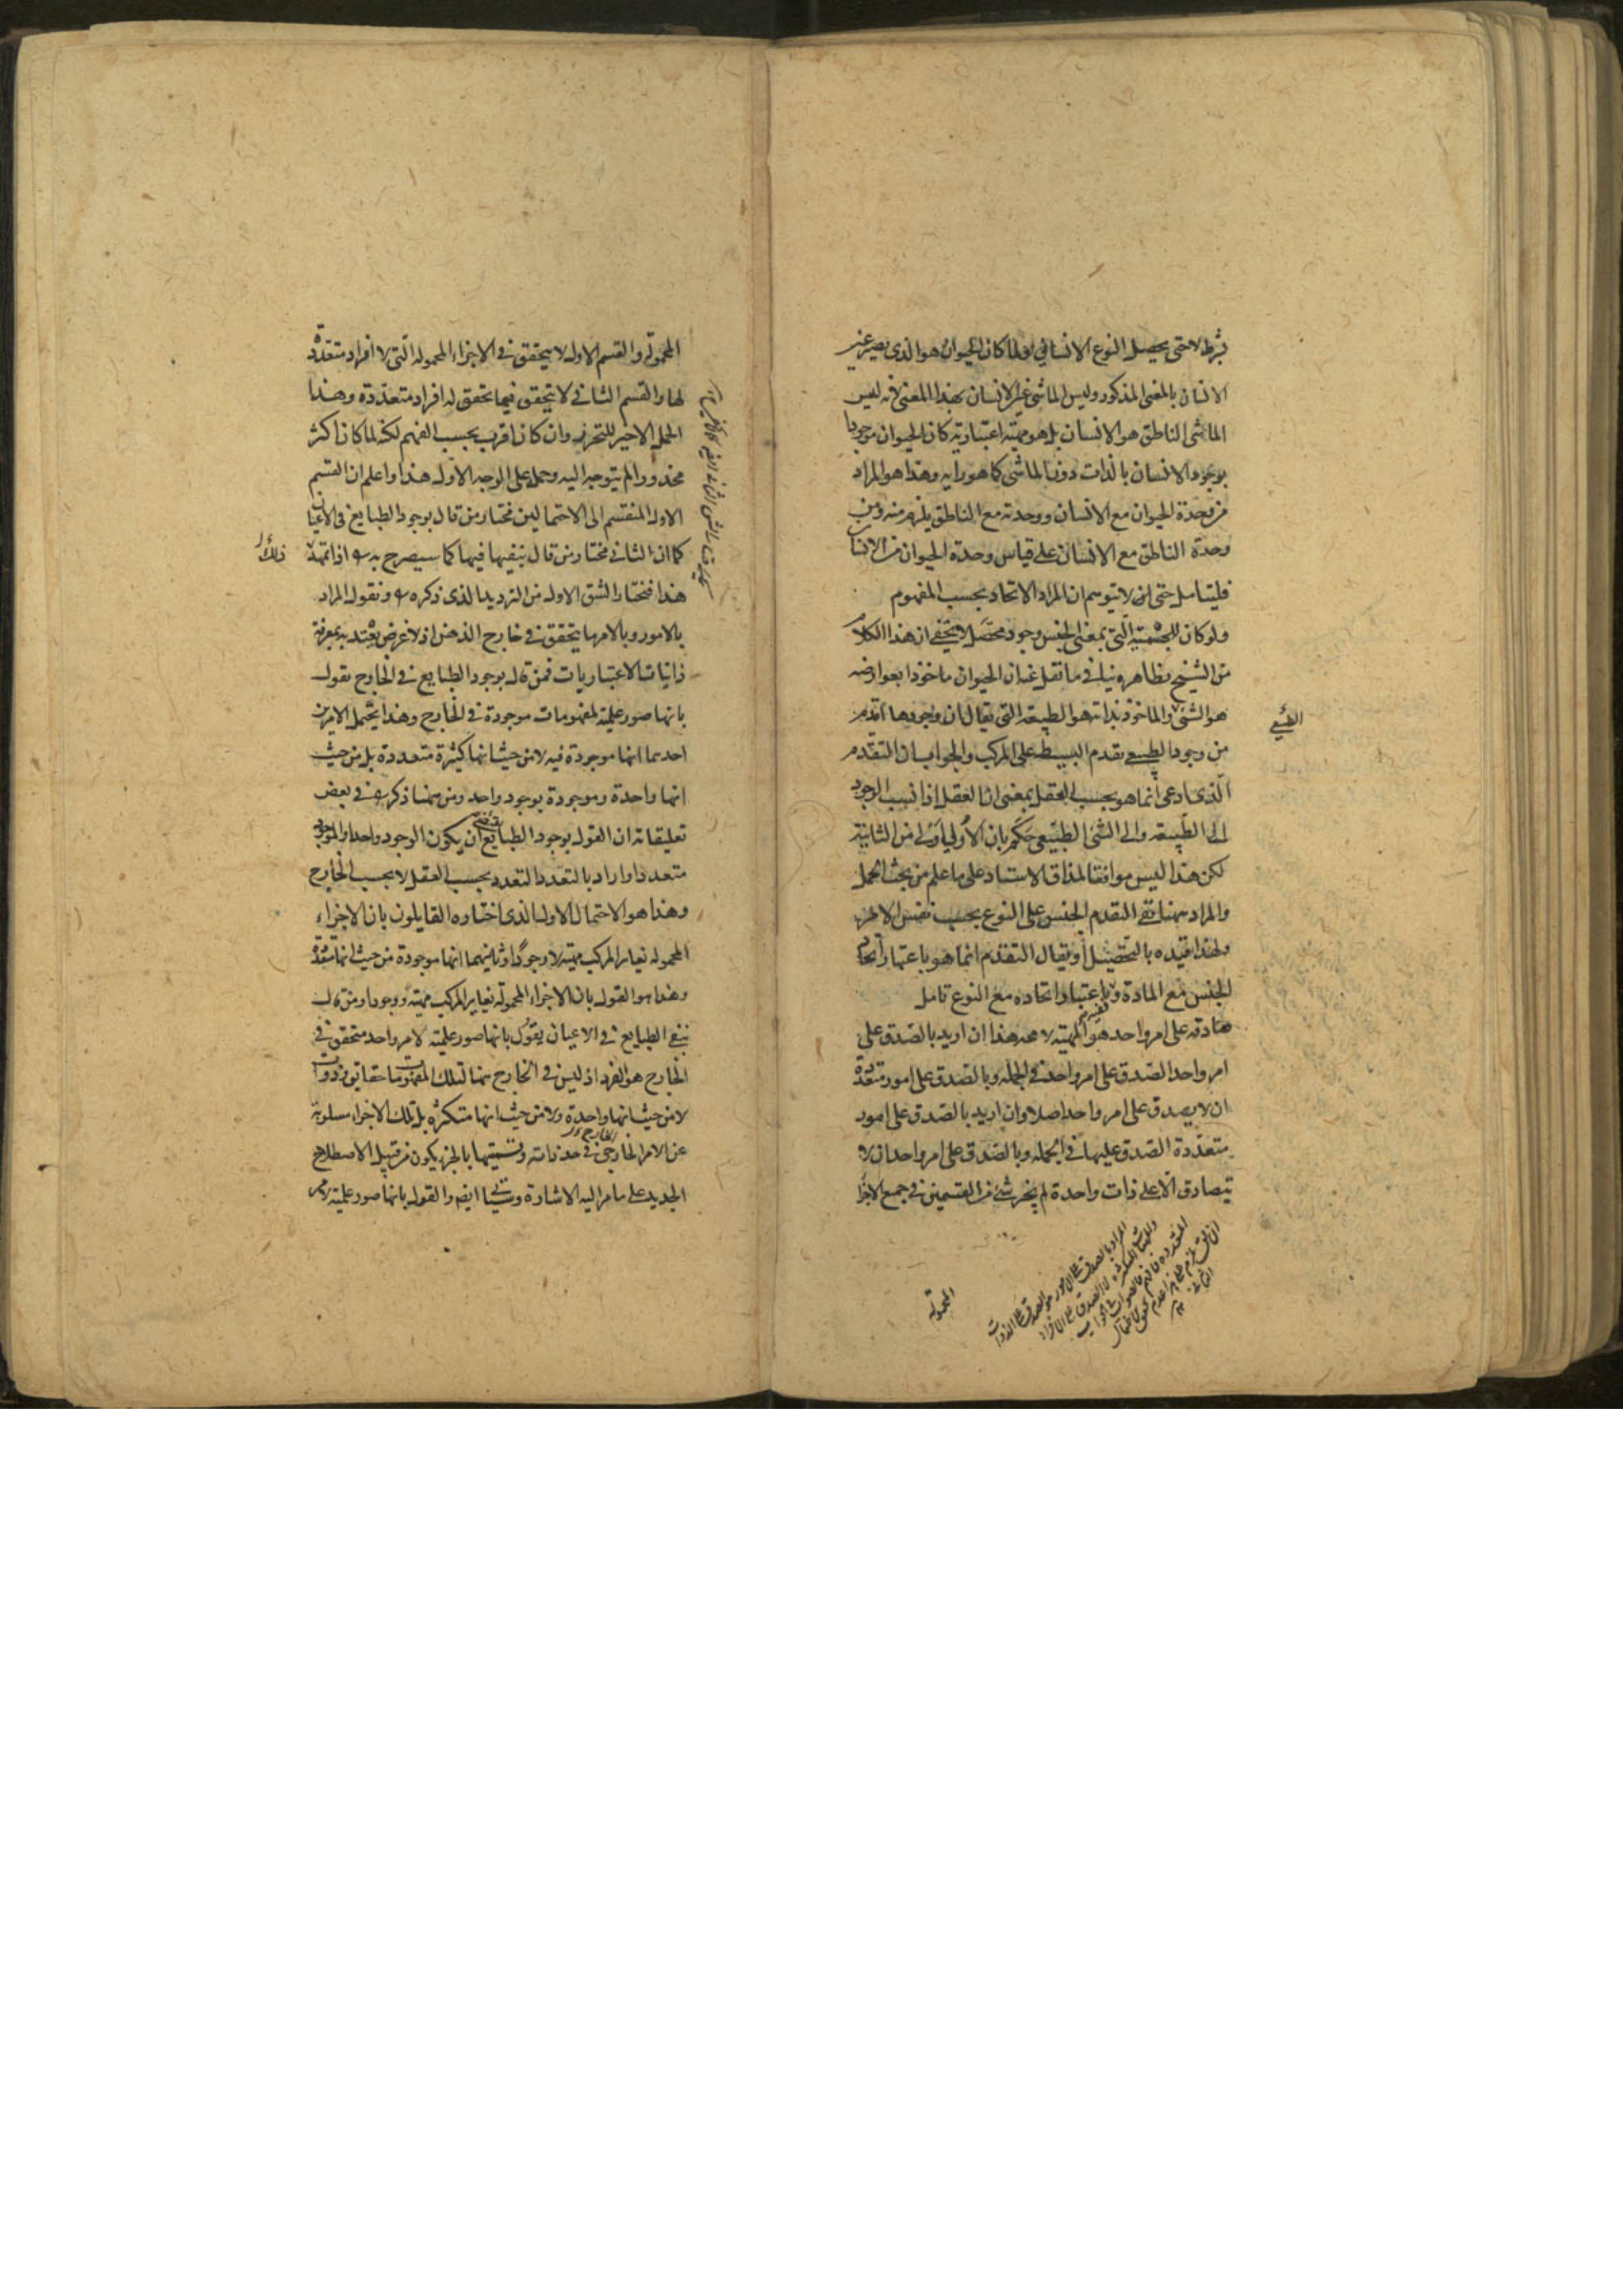 بشرط لا حتى يحصل النوع الانسانى او لما كان الحيوان هو الذى يصير عين
الانسان بالمعنى المذكور وليس الماشى عين الانسان بهذا المعنى لانه ليس
الماشى الناطق هو الانسان بل هو مهية اعتبارية كان الحيوان موجودا
بوجود الانسان بالذات دون الماشى كما هو رايه وهذا هو المراد
من وحدة الحيوان مع الانسان ووحدته مع الناطق يلزم منه ومن
وحدة الناطق مع الانسان على قياس وحدة الحيوان من الانسان
فليتامل حتى لا يتوهم ان المراد الاتحاد بحسب المفهوم
ولو كان للجسمية التى بمعنى الجنس وجود محصل لا يخفى ان هذا الكلام
من الشيخ بظاهره ينافى ما نقل عنه ان الحيوان ماخوذا بعوارضه
هو الشئ والماخوذ بذاته هو الطبيعة التى يقال ان وجودها اقدم
الطبيعى
من وجود الطبيعى تقدم البسيط على المركب والجواب ان التقدم
الذى ادعى انما هو بحسب العقل بمعنى ان العقل اذا نسب الوجود
الى الطبيعة والى الشئ الطبيعى حكم بان الاولى اولى من الثانية
لكن هذا ليس موافقا لمذاق الاستاد على ما علم من بحث الحمل
والمراد هنا نفى التقدم الجنس على النوع بحسب نفس الامر
ولهذا قيده بالتحصيل او يقال التقدم انما هو باعتبار اتحاد
الجنس مع المادة لا باعتبار اتحاده مع النوع تامل
صادقه على امر واحد هو المهية لا محه هذا ان اريد بالصدق على
امر واحد الصدق على امر واحد فى الجملة وبالصدق على امور متعددة
ان لا يصدق على امر واحد اصلا وان اريد بالصدق على امور
متعددة الصدق عليها فى الجملة وبالصدق على امر واحد ان لا
يتصادق الا على ذات واحدة لم يخر شئ من القسمين فى جميع الاجزاء
المراد بالصدق على الامور هو الصدق على الذوات
المحمولة
المحمولة والقسم الاول لا يتحقق فى الاجزاء المحمولة التى لا افراد متعددة
لها والقسم الثانى لا يتحقق فيما تحقق له افراد متعددة وهذا
الحمل الاخير للتحرير وان كان اقرب بحسب الفهم لكنه لما كان اكثر
محذورا لم يتوجه اليه وحمله على الوجه الاول هذا واعلم ان القسم
الاول المنقسم الى الاحتمالين مختار من قال بوجود الطبايع فى الاعيان
كما ان الثانى مختار من قال بنفيها فيها كما سيصرح به اذا تمهد
ذلك
هذا فنختار الشق الاول من الترديد الذى ذكره ونقول المراد
بالامور وبالامر ما يتحقق فى خارج الذهن اذ لا غرض يعتد به بمعرفة
ذاتيات الاعتباريات فمن قال بوجود الطبايع فى الخارج يقول
بانها صور علمية لمفهومات موجودة فى الخارج وهذا يحتمل الامرين
احدهما انها موجودة فيه لا من حيث انها كثيرة متعددة بل من حيث
انها واحدة وموجودة بوجود واحد ومن هنا ذكر فى بعض
تعليقاته ان القول بوجود الطبايع ان يكون الوجود واحدا والموجود
متعددا واراد بالتعدد التعدد بحسب العقل لا بحسب الخارج
وهذا هو الاحتمال الاول الذى اختاره القايلون بان الاجزاء
المحمولة تغاير المركب مهية لا وجودا وثانيهما انها موجودة من حيث انها متعددة
وهذا هو القول بان الاجزاء المحمولة تغاير المركب مهية ووجودا ومن قال
بنفى الطبايع فى الاعيان يقول بانها صور علمية لامر واحد متحقق فى
الخارج هو الفرد اذ ليس فى الخارج هنا لتلك المفهومات حقايق وذوات
لا من حيث انها واحدة ولا من حيث انها متكثرة بل تلك الاجزاء مسلوبة
عن الامر الخارجى فى حد ذاته وتسميتها بالجزء يكون من قبيل الاصطلاح
الجديد على ما مر اليه الاشارة وسياتى ايضا والقول بانها صور علمية لامر